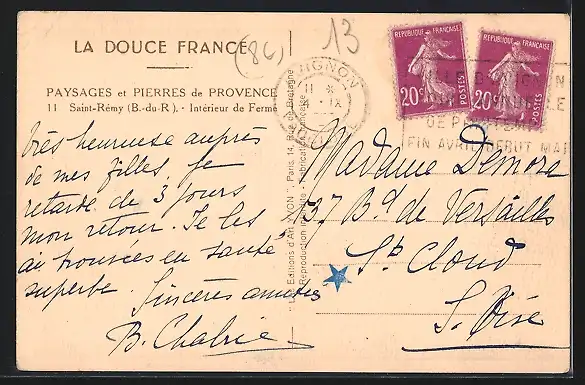 LA DOUCE FRANCE
(86)
13
PAYSAGES et PIERRES de PROVENCE
11 Saint-Rémy (B.-du-R). - Intérieur de Ferme
Très heureuse auprès
de mes filles, je
retarde de 3 jours
mon retour. Je les
ai trouvées en santé
superbe. Sincères amitiés
B. Chabrie
"Les Editions d'Art YVON", Paris, 14, Rue de Bretagne
Reproduction interdite - Fabrication Française
AVIGNON
REPUBLIQUE FRANÇAISE
20c
POSTES
REPUBLIQUE FRANÇAISE
20c
POSTES
FIN AVRIL DEBUT MAI
Madame Demora
37 Bd de Versailles
St Cloud
S. Oise